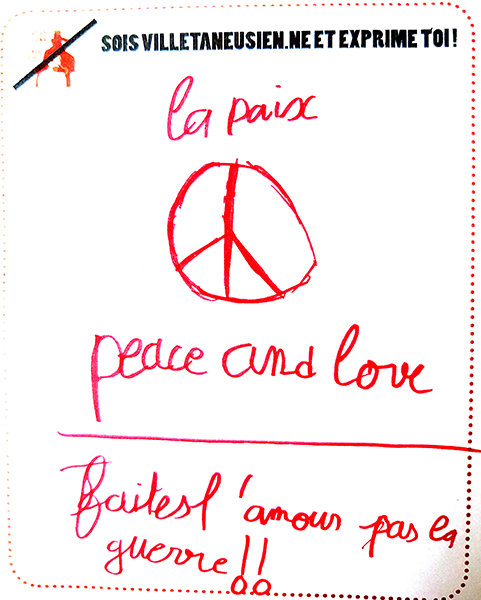 SOIS VILLETANEUSIEN.NE ET EXPRIME TOI !
la paix
peace and love
faites l'amour pas la
guerre !!